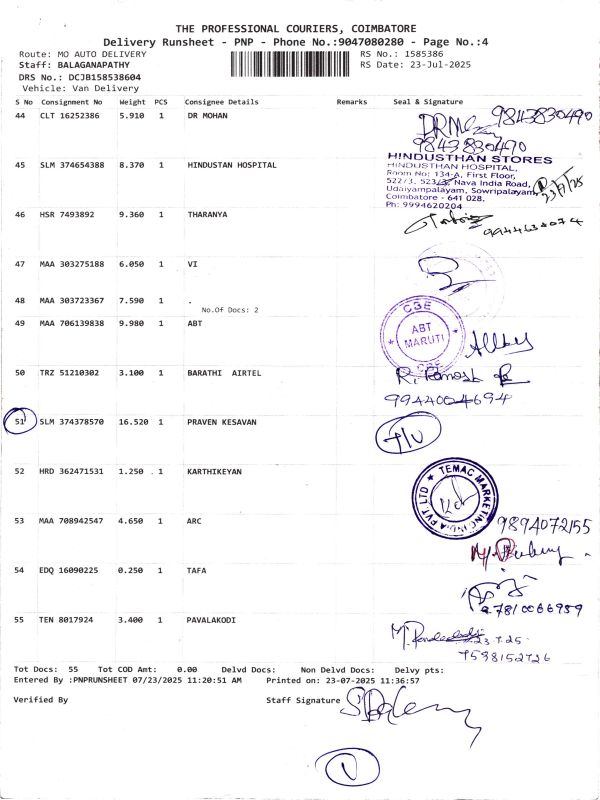 THE PROFESSIONAL COURIERS, COIMBATORE
Delivery Runsheet - PNP - Phone No.:9047080280 - Page No.:4
Route: MO AUTO DELIVERY RS No.: 1585386
Staff: BALAGANAPATHY RS Date: 23-Jul-2025
DRS No.: DCJB158538604
Vehicle: Van Delivery
S No Consignment No Weight PCS Consignee Details Remarks Seal & Signature
44 CLT 16252386 5.910 1 DR MOHAN
9843830490
9843830470
45 SLM 374654388 8.370 1 HINDUSTAN HOSPITAL
HINDUSTHAN STORES
HINDUSTHAN HOSPITAL,
Room No: 134-A, First Floor,
522/3, 523/3, Nava India Road,
Udaiyampalayam, Sowripalayam,
Coimbatore - 641 028.
Ph: 9994620204
23/7/25
46 HSR 7493892 9.360 1 THARANYA
47 MAA 303275188 6.050 1 VI
48 MAA 303723367 7.590 1 .
No.Of Docs: 2
49 MAA 706139838 9.980 1 ABT
CBE
ABT
MARUTI
CBE
50 TRZ 51210302 3.100 1 BARATHI AIRTEL
R. Ramesh
9944004694
51 SLM 374378570 16.520 1 PRAVEN KESAVAN
52 HRD 362471531 1.250 . 1 KARTHIKEYAN
TEMAC MARKETING INDIA PVT. LTD
53 MAA 708942547 4.650 1 ARC
9894072155
54 EDQ 16090225 0.250 1 TAFA
97810066959
55 TEN 8017924 3.400 1 PAVALAKODI
23.7.25
7598152726
Tot Docs: 55 Tot COD Amt: 0.00 Delvd Docs: Non Delvd Docs: Delvy pts:
Entered By :PNPRUNSHEET 07/23/2025 11:20:51 AM Printed on: 23-07-2025 11:36:57
Verified By Staff Signature